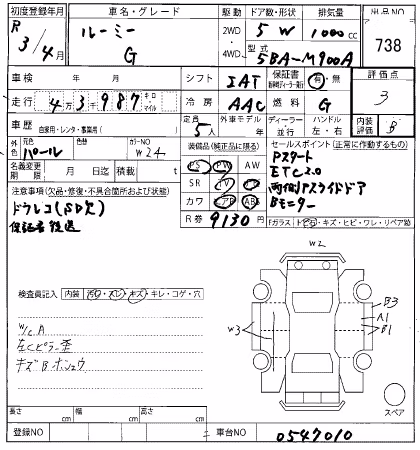 初度登録年月 車名・グレード 駆動 ドア数・形状 排気量 出品NO
R 3/4月 ルーミー G 2WD 4WD 5 W 1000cc 738
型式 5BA-M900A
車検 年 月 シフト IAT 保証書 有・無 評価点
走行 4万3千987 キロ・マイル 冷房 AAC 燃料 G 3
車歴 自家用・レンタ・事業用( ) 定員 5人 外車モデル 年 ディーラー・並行 ハンドル 左・右 内装評価 B
外色 元色 パール 色替 カラーNO W24 装備品(純正品に限る) セールスポイント(正常に作動するもの)
名義変更期限 月 日 積載 t PS PW AW Pスタート
注意事項(欠品・修復・不具合箇所および状態) SR TV ETC2.0
ドラレコ(SD欠) カワ エアB ABS 両側Pスライドドア
保証書後送 R券 9130円 Bモニター
Fガラス トビ石・キズ・ヒビ・ワレ・リペア跡
検査員記入 内装 汚レ・スレ・キズ・キレ・コゲ・穴
W2
B3
A1
W3 B1
W/C A
左Cピラー歪
キズBホシュウ
スペア
長さ cm 幅 cm 高さ cm
登録NO 車台NO 0547010